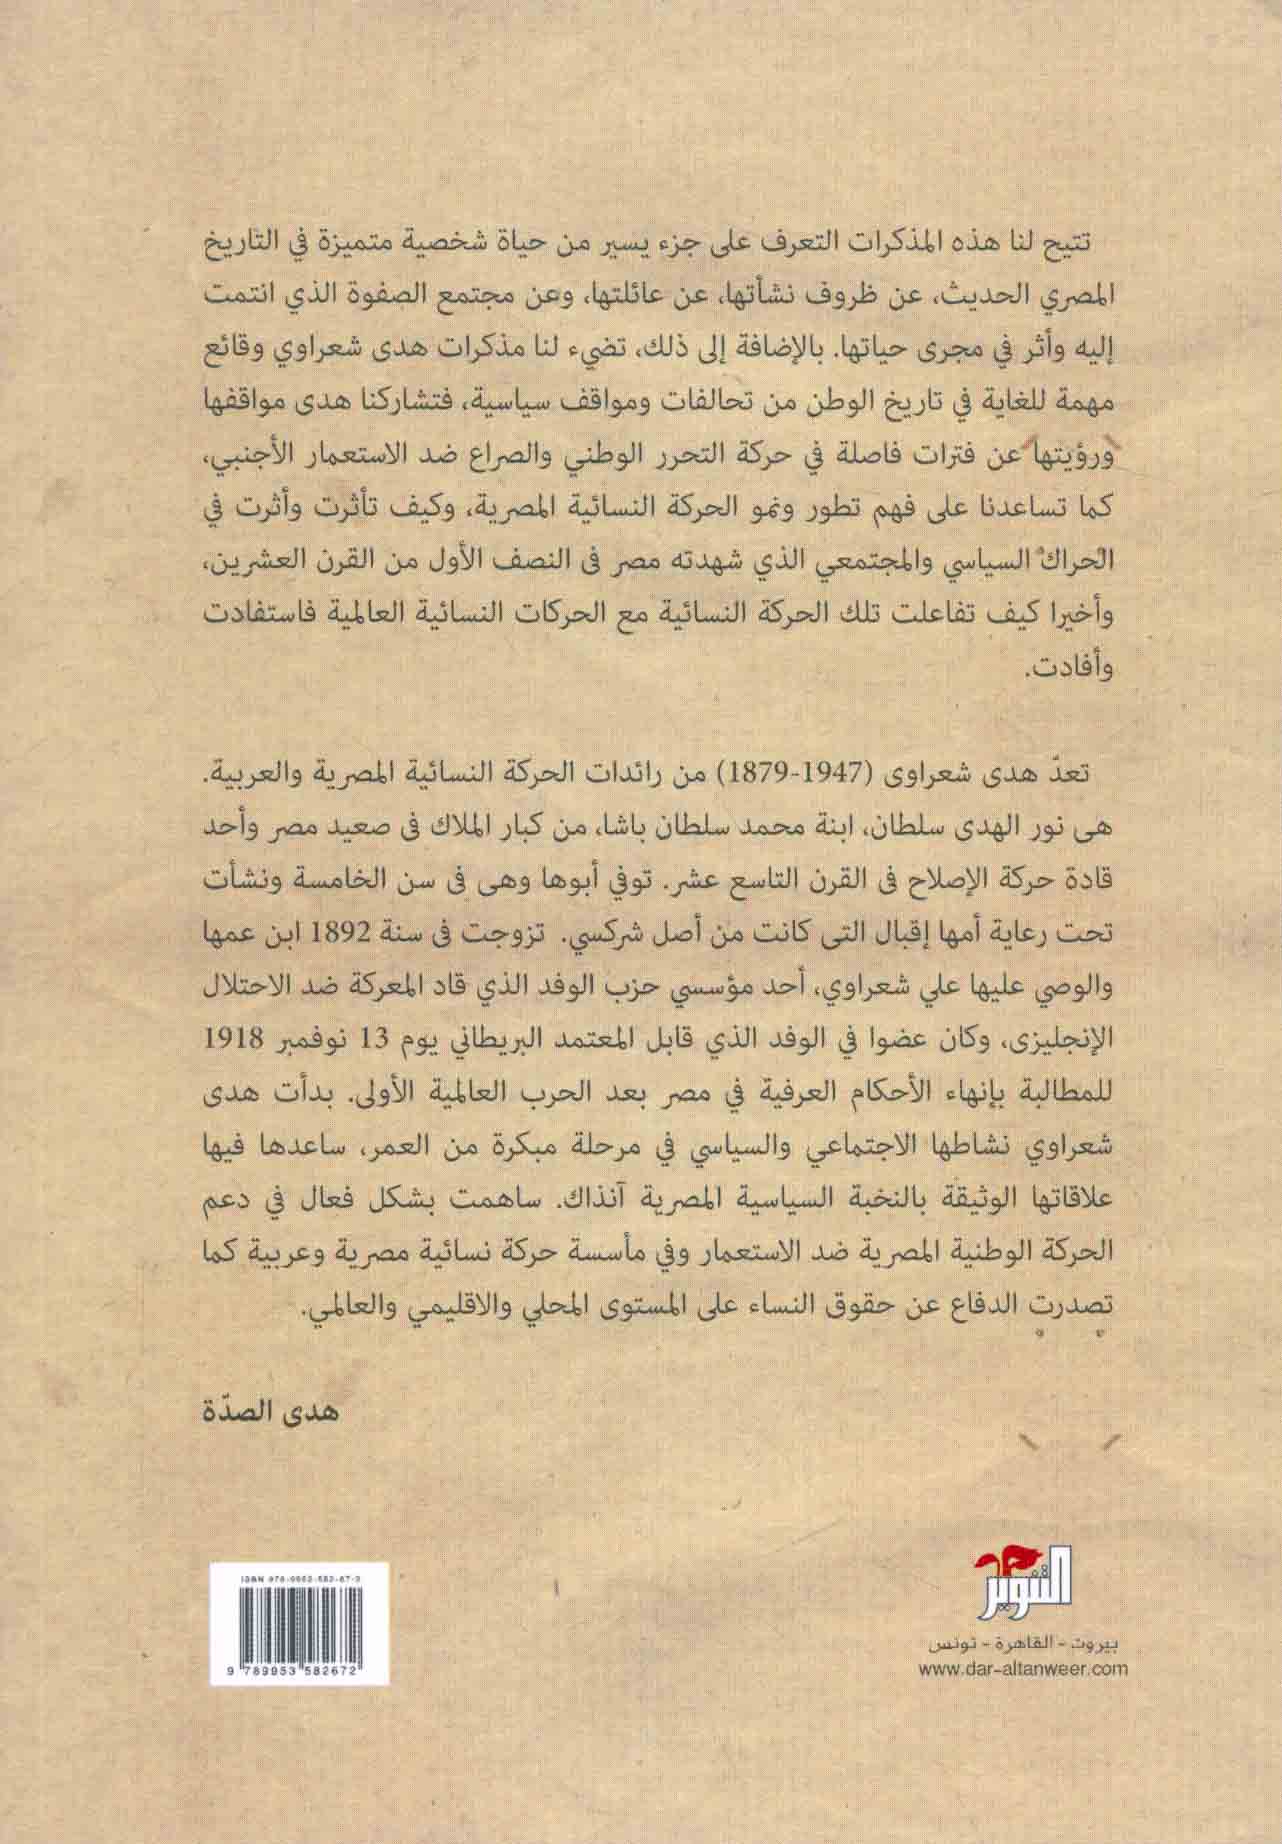 تتيح لنا هذه المذكرات التعرف على جزء يسير من حياة شخصية متميزة في التاريخ
المصري الحديث، عن ظروف نشأتها، عن عائلتها، وعن مجتمع الصفوة الذي انتمت
إليه وأثر في مجرى حياتها. بالإضافة إلى ذلك، تضيء لنا مذكرات هدى شعراوي وقائع
مهمة للغاية في تاريخ الوطن من تحالفات ومواقف سياسية، فتشاركنا هدى مواقفها
ورؤيتها عن فترات فاصلة في حركة التحرر الوطني والصراع ضد الاستعمار الأجنبي،
كما تساعدنا على فهم تطور ونمو الحركة النسائية المصرية، وكيف تأثرت وأثرت في
الحراك السياسي والمجتمعي الذي شهدته مصر فى النصف الأول من القرن العشرين،
وأخيرا كيف تفاعلت تلك الحركة النسائية مع الحركات النسائية العالمية فاستفادت
وأفادت.
تعدّ هدى شعراوى (1947-1879) من رائدات الحركة النسائية المصرية والعربية.
هى نور الهدى سلطان، ابنة محمد سلطان باشا، من كبار الملاك فى صعيد مصر وأحد
قادة حركة الإصلاح فى القرن التاسع عشر. توفي أبوها وهى فى سن الخامسة ونشأت
تحت رعاية أمها إقبال التى كانت من أصل شركسي. تزوجت فى سنة 1892 ابن عمها
والوصي عليها علي شعراوي، أحد مؤسسي حزب الوفد الذي قاد المعركة ضد الاحتلال
الإنجليزى، وكان عضوا في الوفد الذي قابل المعتمد البريطاني يوم 13 نوفمبر 1918
للمطالبة بإنهاء الأحكام العرفية في مصر بعد الحرب العالمية الأولى. بدأت هدى
شعراوي نشاطها الاجتماعي والسياسي في مرحلة مبكرة من العمر، ساعدها فيها
علاقاتها الوثيقة بالنخبة السياسية المصرية آنذاك. ساهمت بشكل فعال في دعم
الحركة الوطنية المصرية ضد الاستعمار وفي مأسسة حركة نسائية مصرية وعربية كما
تصدرت الدفاع عن حقوق النساء على المستوى المحلي والاقليمي والعالمي.
هدى الصدّة
التنوير
بيروت - القاهرة - تونس
www.dar-altanweer.com
ISBN 978-9953-582-67-2
9 789953 582672